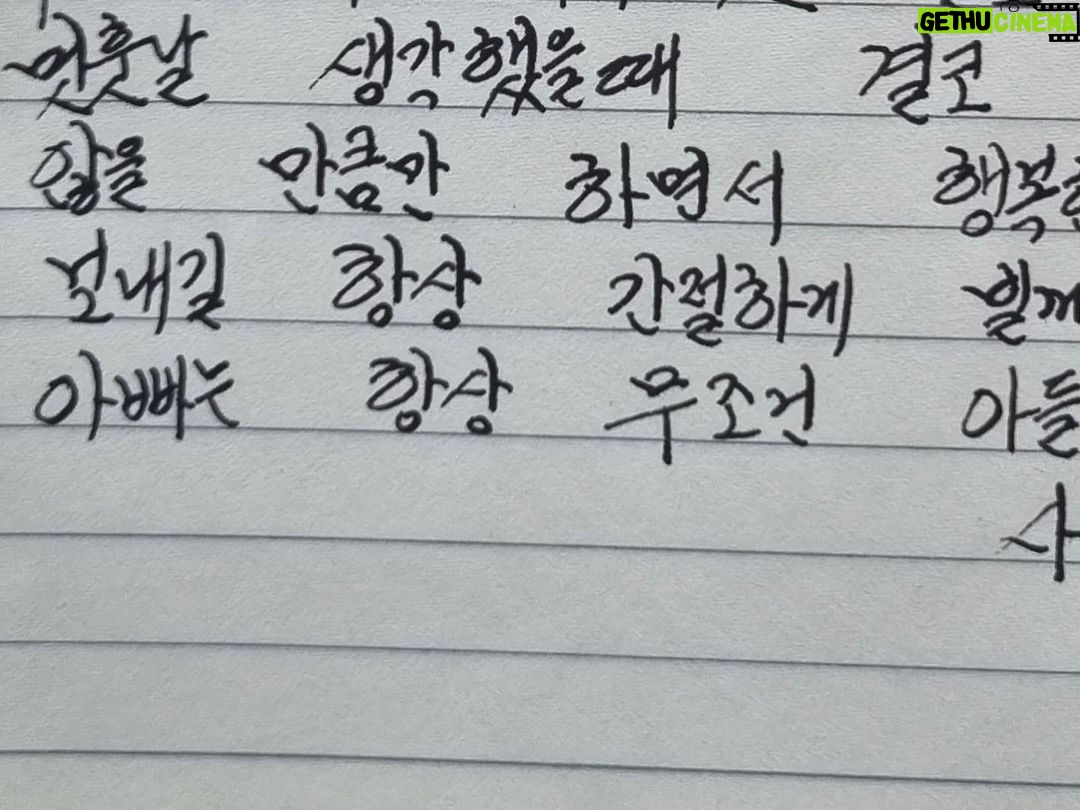 GETHUCINEMA
먼훗날 생각했을때 결코
않을 만큼만 하면서 행복한
보내길 항상 간절하게 빌께
아빠는 항상 무조건 아들
사